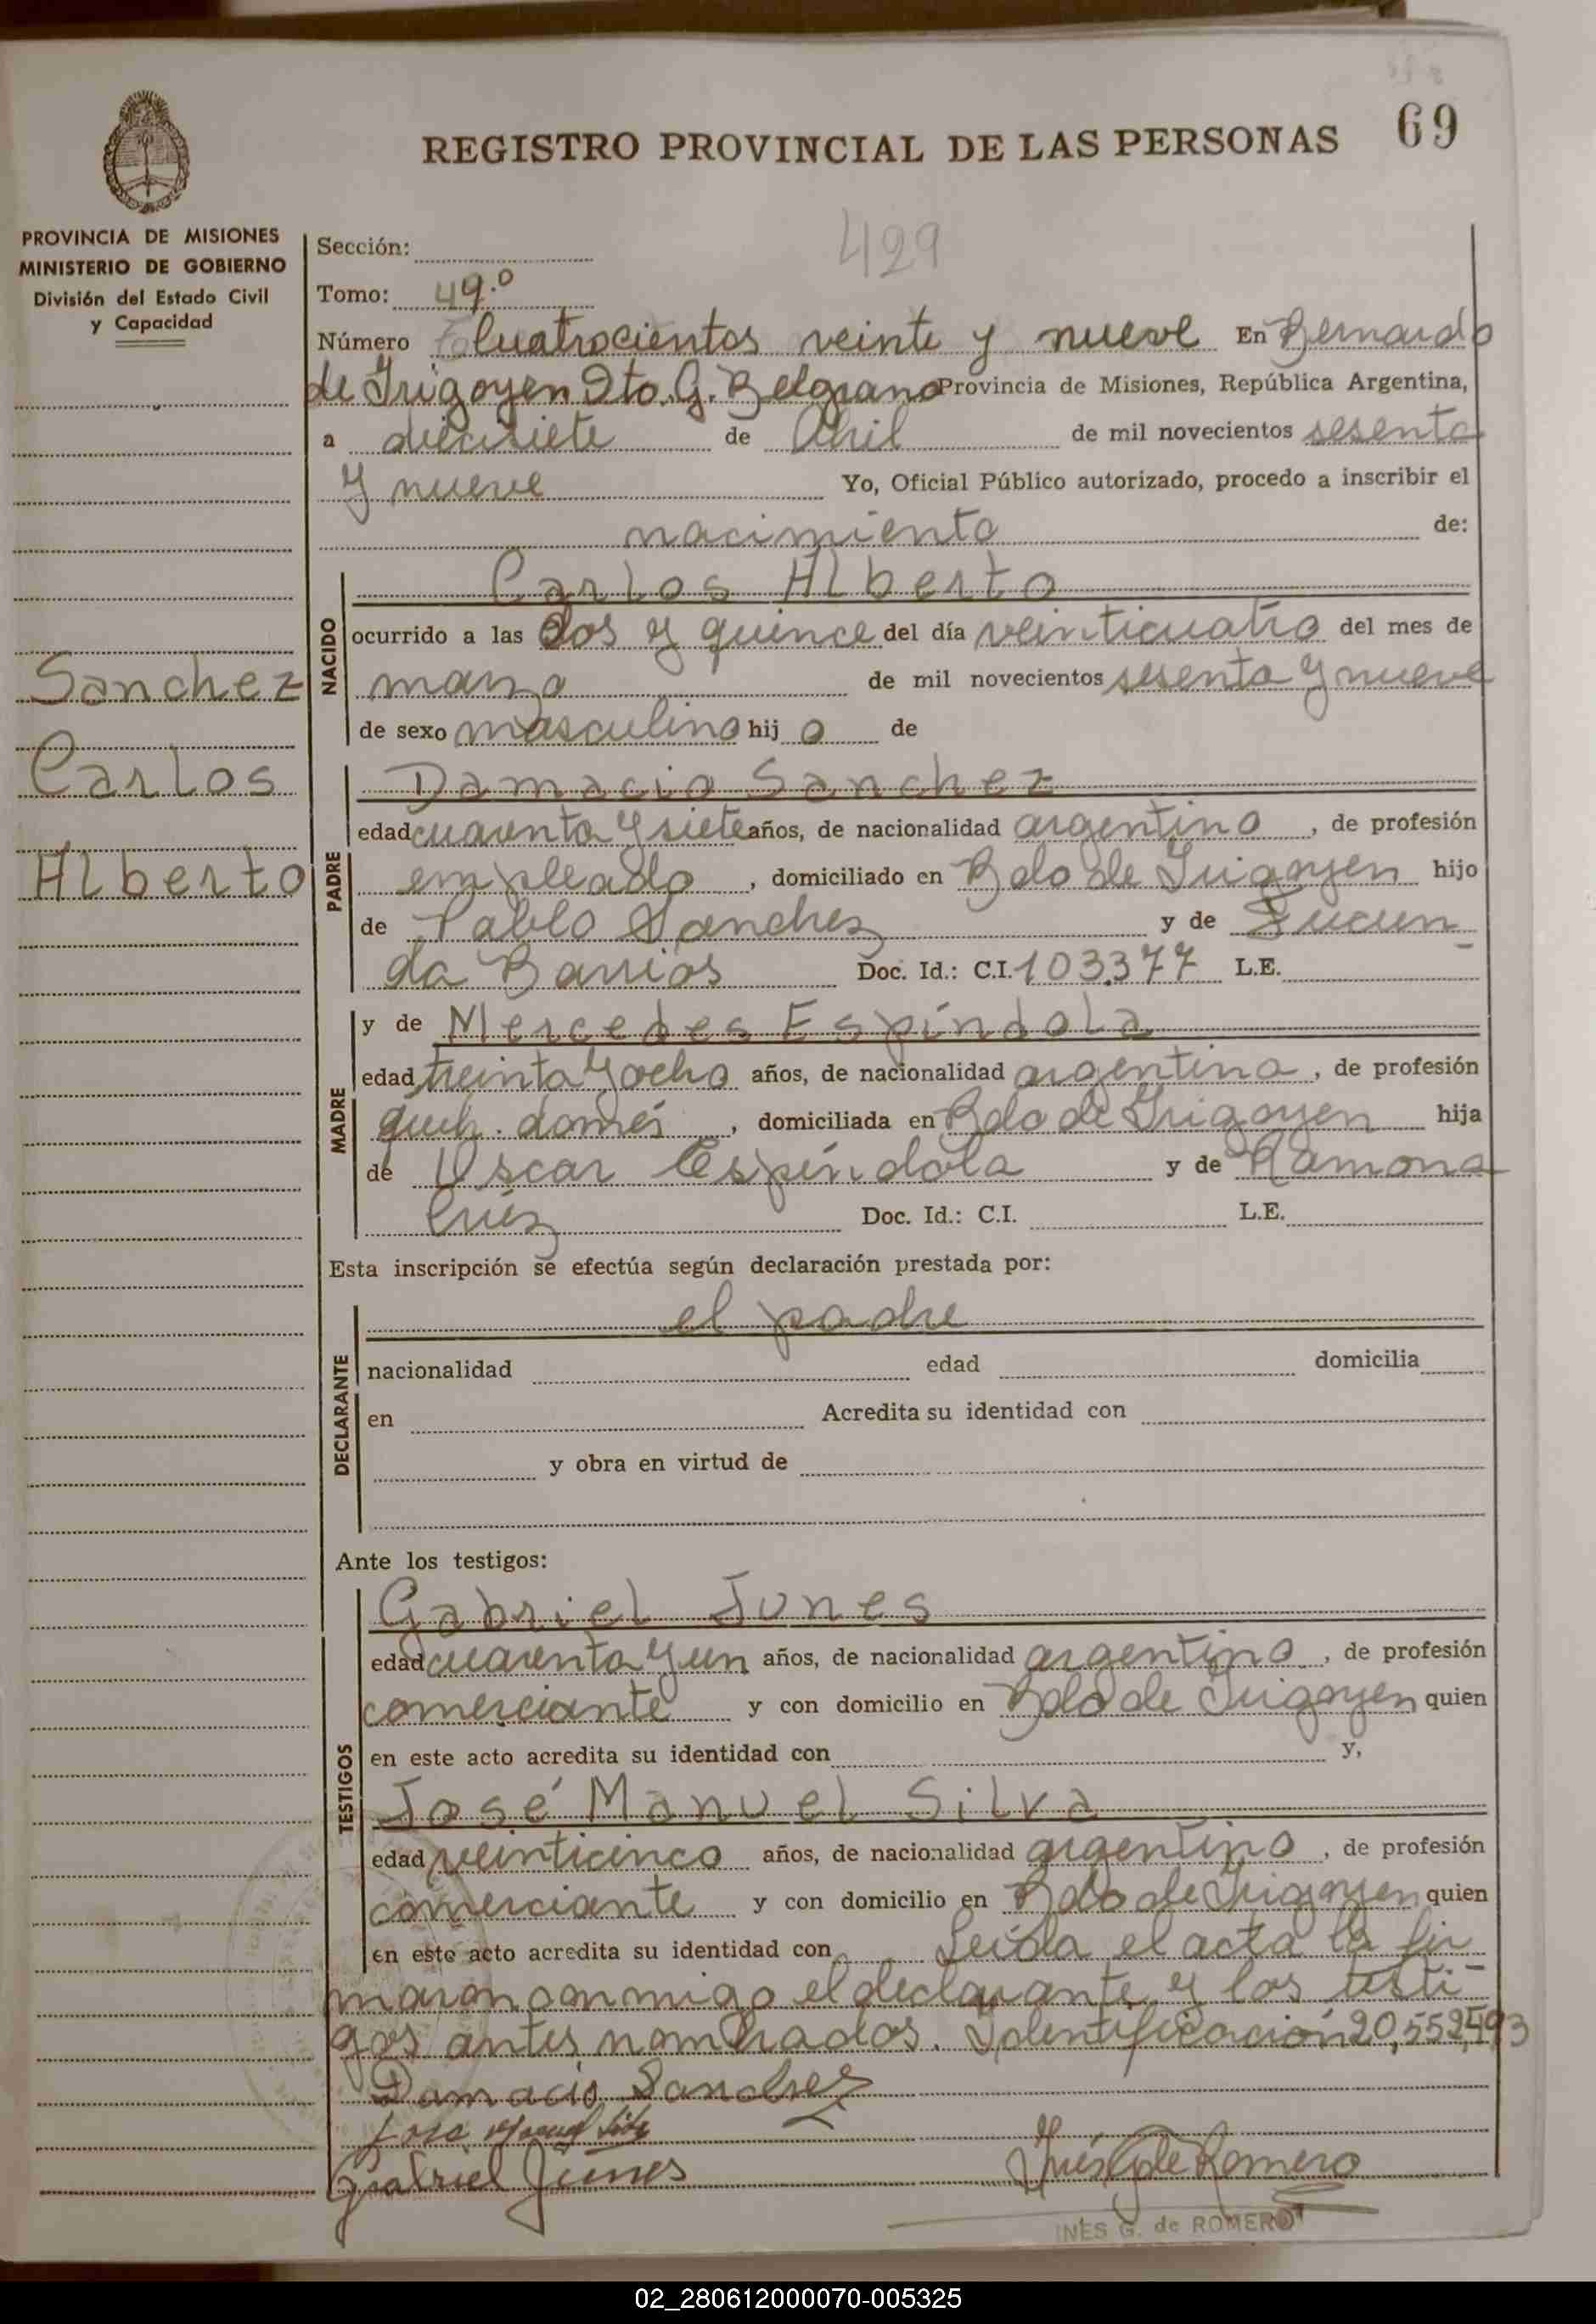 69
REGISTRO PROVINCIAL DE LAS PERSONAS
PROVINCIA DE MISIONES
MINISTERIO DE GOBIERNO
División del Estado Civil
y Capacidad
429
Sección:
Tomo: 49.º
Número Cuatrocientos veinte y nueve En Bernardo
de Irigoyen Dto. G. Belgrano Provincia de Misiones, República Argentina,
a diecisiete de Abril de mil novecientos sesenta
y nueve Yo, Oficial Público autorizado, procedo a inscribir el
nacimiento de:
Sanchez
Carlos
Alberto
NACIDO
Carlos Alberto
ocurrido a las dos y quince del día veinticuatro del mes de
marzo de mil novecientos sesenta y nueve
de sexo masculino hij o de
PADRE
Damacio Sanchez
edad cuarenta y siete años, de nacionalidad argentino, de profesión
empleado, domiciliado en Bdo de Irigoyen hijo
de Pablo Sanchez y de
da Barrios Doc. Id.: C.I. 103.377 L.E.
MADRE
y de Mercedes Espíndola
edad treinta y ocho años, de nacionalidad argentina, de profesión
queh. domés, domiciliada en Bdo de Irigoyen hija
de Oscar Espíndola y de Ramona
Doc. Id.: C.I. L.E.
Esta inscripción se efectúa según declaración prestada por:
DECLARANTE
el padre
nacionalidad edad domicilia
en Acredita su identidad con
y obra en virtud de
Ante los testigos:
TESTIGOS
Gabriel Junes
edad cuarenta y un años, de nacionalidad argentino, de profesión
comerciante y con domicilio en Bdo de Irigoyen quien
en este acto acredita su identidad con y,
José Manuel Silva
edad veinticinco años, de nacionalidad argentino, de profesión
comerciante y con domicilio en Bdo de Irigoyen quien
en este acto acredita su identidad con Leída el acta la fir
maron conmigo el declarante y los testi-
gos antes nombrados. Identificación 20,552,493
Damacio Sanchez
Jose Manuel Silva
Gabriel Junes
Inés G de Romero
INÉS G. de ROMERO
02_280612000070-005325